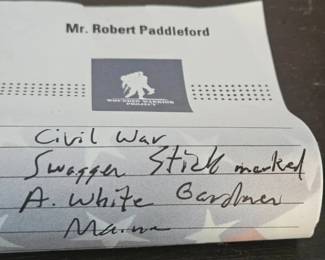 Mr. Robert Paddleford
WOUNDED WARRIOR
PROJECT
Civil War
Swagger Stick marked
A. White Gardner
Maine